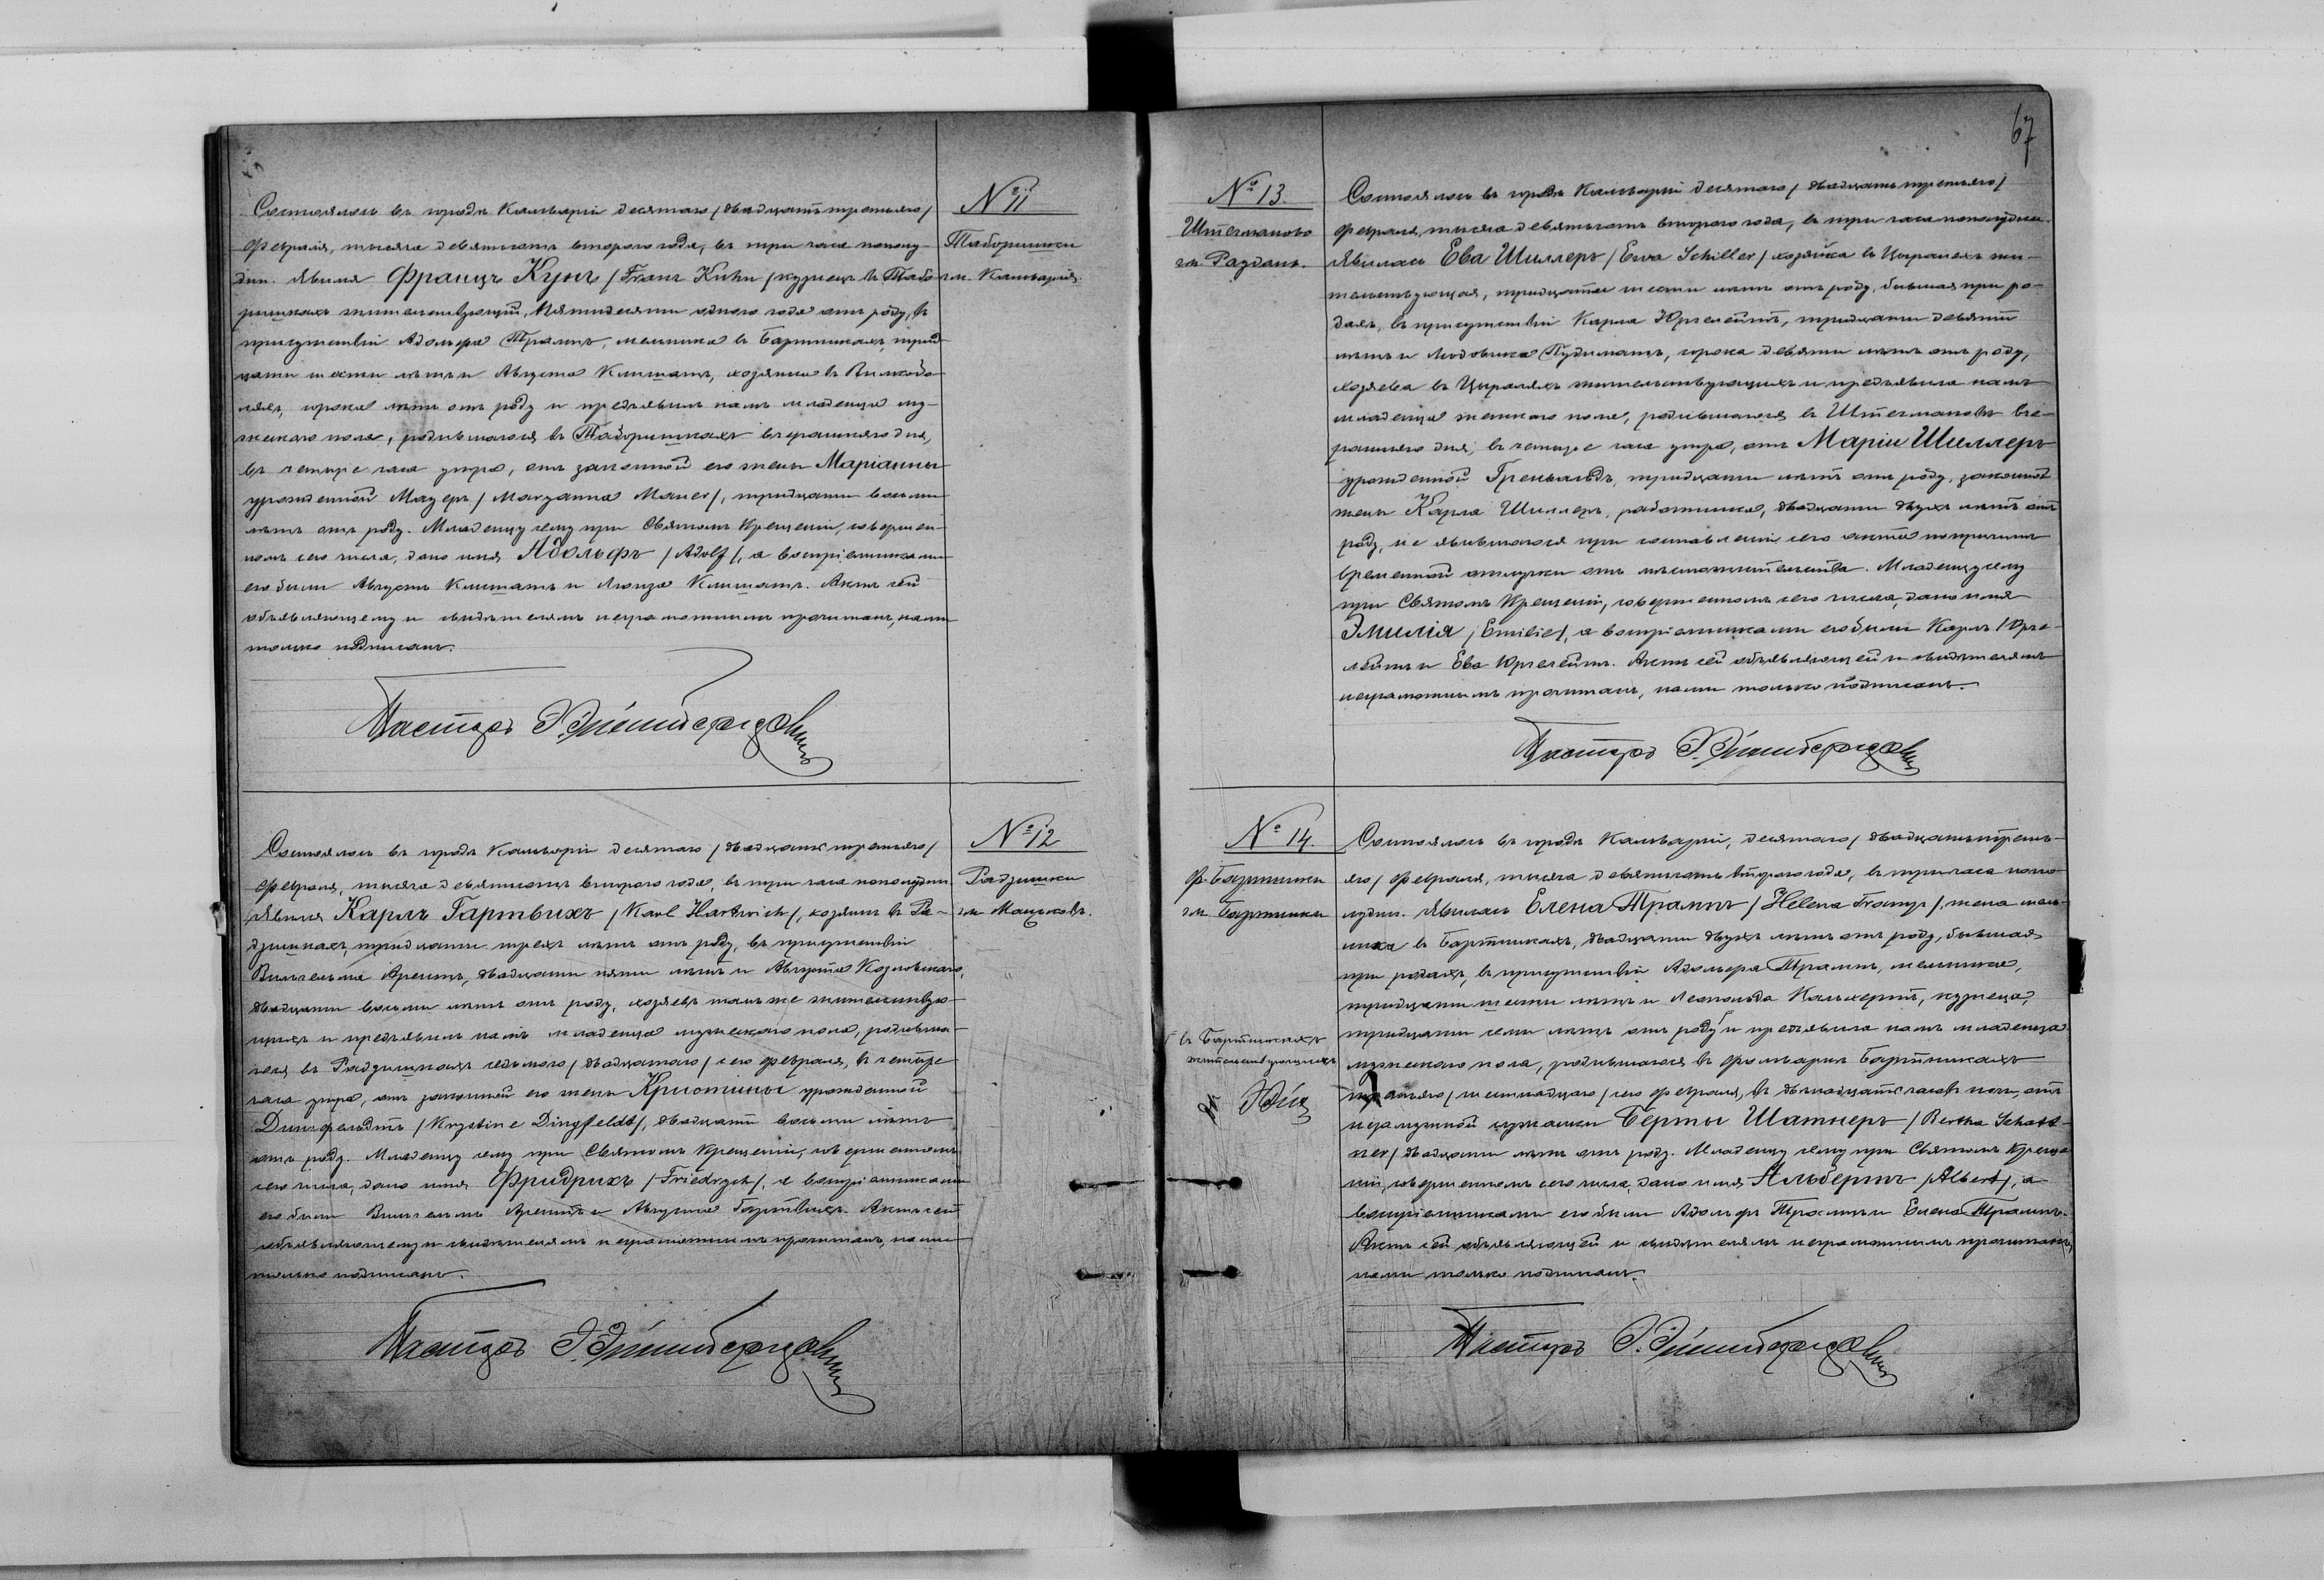 Состоялось въ городѣ Кальваріи десятаго /двадцать третьяго/
Февраля, тысяча девятьсотъ второго года, въ три часа пополу-
дни. Явился Францъ Кунъ /Franz Kuhn/ кузнецъ въ Табо-
ришкахъ жительствующій, пятидесяти одного года отъ роду, въ
присутствіи Адольфа Трампъ, мельника въ Бартникахъ, трид-
цати шести лѣтъ и Августа Климатъ, хозяина въ
сорока лѣтъ отъ роду и предъявилъ намъ младенца му-
жескаго пола, родившагося въ Таборишкахъ вчерашняго дня,
въ четыре часа утра, отъ законной его жены Маріанны
урожденной Мауеръ /Maryanna Mauer/, тридцати восьми
лѣтъ отъ роду. Младенцу сему при Святомъ Крещеніи, совершен-
номъ сего числа, дано имя Адольфъ /Adolf/, а воспріемниками
его были Августъ Климатъ и Луиза Климатъ. Актъ сей
объявляющему и свидѣтелямъ неграмотнымъ прочитанъ, нами
только подписанъ.
Пасторъ
№ 11
Таборишки
гм. Кальварія.
Состоялось въ городѣ Кальваріи десятаго /двадцать третьяго/
Февраля, тысяча девятьсотъ второго года, въ три часа пополудни.
Явился Карлъ Гартвихъ /Karl Hartwich/, хозяинъ въ Ра-
дзишкахъ, тридцати трехъ лѣтъ отъ роду, въ присутствіи
Вильгельма Арентъ, двадцати пяти лѣтъ и Августа Козловскаго,
двадцати восьми лѣтъ отъ роду, хозяевъ тамъ же жительствую-
щихъ и предъявилъ намъ младенца мужескаго пола, родивша-
гося въ Радзишкахъ седьмого /двадцатаго/ сего Февраля, въ четыре
часа утра, отъ законной его жены Кристины урожденной
Дингфельдтъ /Krystine Dingfeldt/, двадцати восьми лѣтъ
отъ роду. Младенцу сему при Святомъ Крещеніи, совершенномъ
сего числа, дано имя Фридрихъ /Friedrych/, а воспріемниками
его были Вильгельмъ Арентъ и Августа Гартвихъ. Актъ сей
объявляющему и свидѣтелямъ неграмотнымъ прочитанъ, нами
только подписанъ.
Пасторъ
№ 12
Радзишки
гм. Мацьковъ.
67
№ 13.
Штегманово
гм. Раудань.
Состоялось въ городѣ Кальваріи десятаго /двадцать третьяго/
Февраля, тысяча девятьсотъ второго года, въ три часа пополудни.
Явилась Ева Шиллеръ /Ewa Schiller/ хозяйка въ Цыраляхъ жи-
тельствующая, тридцати шести лѣтъ отъ роду, бывшая при ро-
дахъ, въ присутствіи Карла Юргелейтъ, тридцати девяти
лѣтъ и Людовика Пудиматъ, сорока девяти лѣтъ отъ роду,
хозяева въ Цыраляхъ жительствующихъ и предъявила намъ
младенца женскаго пола, родившагося въ Штегмановѣ вче-
рашняго дня, въ четыре часа утра, отъ Маріи Шиллеръ
урожденной Гренвальдъ, тридцати лѣтъ отъ роду, законной
жены Карла Шиллеръ, работника, двадцати двухъ лѣтъ отъ
роду, не явившагося при составленіи сего акта по причинѣ
временной отлучки отъ мѣстожительства. Младенцу сему
при Святомъ Крещеніи, совершенномъ сего числа, дано имя
Эмилія /Emilie/, а воспріемниками его были Карлъ Юрге-
лейтъ и Ева Юргелейтъ. Актъ сей объявляющей и свидѣтелямъ
неграмотнымъ прочитанъ, нами только подписанъ.
Пасторъ
№ 14.
Ф. Бартники
гм. Бартники
въ Бартникахъ
жительствующихъ
Состоялось въ городѣ Кальваріи, десятаго /двадцать треть-
яго/ Февраля, тысяча девятьсотъ второго года, въ три часа попо-
лудни. Явилась Елена Трампъ /Helena Tramp/, жена мель-
ника въ Бартникахъ, двадцати двухъ лѣтъ отъ роду, бывшая
при родахъ, въ присутствіи Адольфа Трампъ, мельника,
тридцати шести лѣтъ и Леопольда Кальхертъ, кузнеца,
тридцати семи лѣтъ отъ роду и предъявила намъ младенца
мужескаго пола, родившагося въ фольваркѣ Бартникахъ
третьяго /шестнадцаго/ сего Февраля, въ двѣнадцать часовъ ночи, отъ
незамужной служанки Берты Шатнеръ /Bertha Schatt-
ner/ двадцати лѣтъ отъ роду. Младенцу сему при Святомъ Креще-
ніи, совершенномъ сего числа, дано имя Альбертъ /Albert/, а
воспріемниками его были Адольфъ Трампъ и Елена Трампъ.
Актъ сей объявляющей и свидѣтелямъ неграмотнымъ прочитанъ,
нами только подписанъ.
Пасторъ